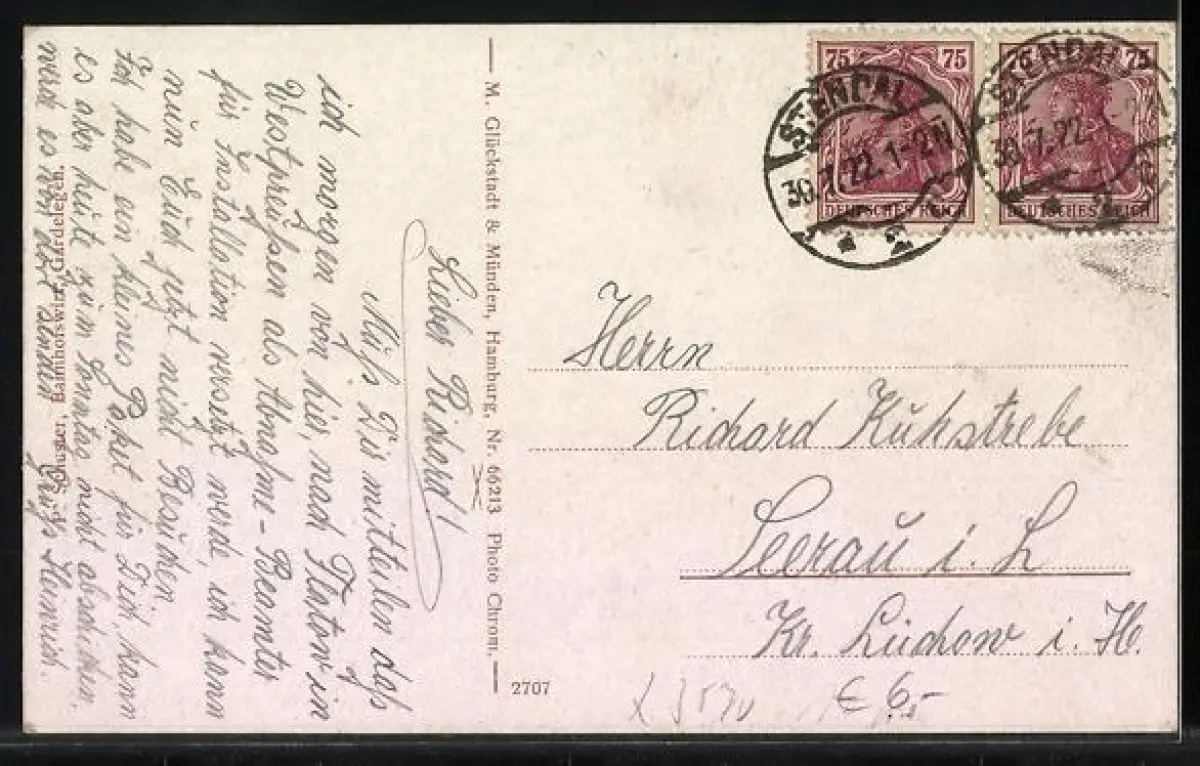 Lieber Richard!
Muß Dir mitteilen daß
ich morgen von hier, nach Flatow in
Westpreußen als Abnahme-Beamter
für Installation versetzt werde, ich kann
nun Euch jetzt nicht Besuchen.
Ich habe ein kleines Paket für Dich kann
es aber heute zum Sonntag nicht abschicken.
werd es von dort
Gruß Heinrich.
Schuster, Bahnhofswirt, Gardelegen.
M. Glückstadt & Münden, Hamburg, Nr. 66213 Photo Chrom.
2707
75 75
DEUTSCHES REICH
STENDAL
30.7.22. 1-2N
* 2
75 75
DEUTSCHES REICH
STENDAL
30.7.22
* 2
Herrn
Richard Kuhstrebe
Seerau i. L
Kr. Lüchow i. H.
€ 6,-